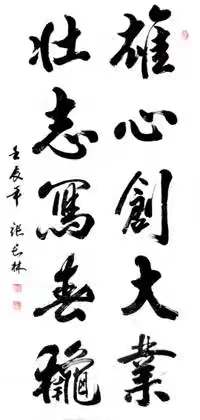 雄心創大業
壯志寫春龝
壬辰年 張 林